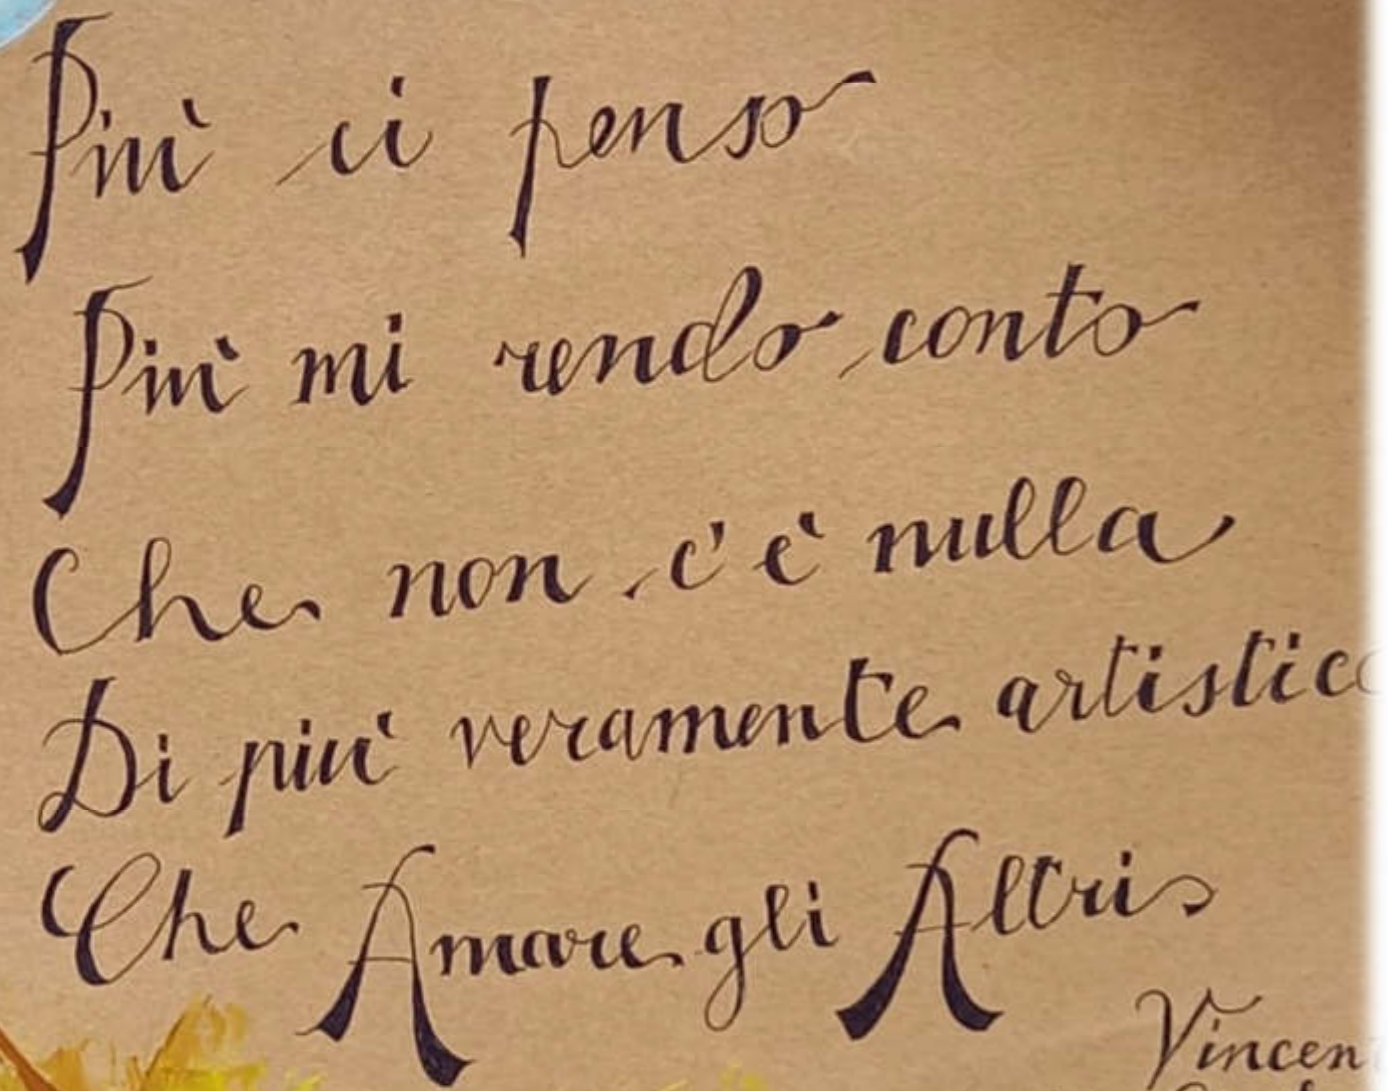 Più ci penso
Più mi rendo conto
Che non c'è nulla
Di più veramente artistico
Che Amare gli Altri
Vincent